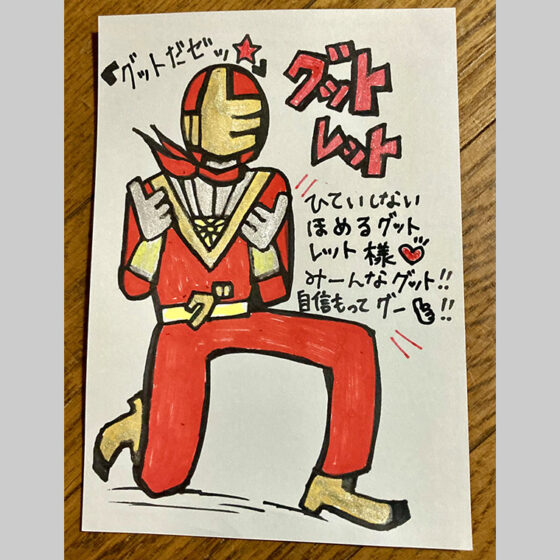 『グットだゼッ★』
グット
レット
ひていしない
ほめるグット
レット様
みーんなグット!!
自信もってグー!!
グ